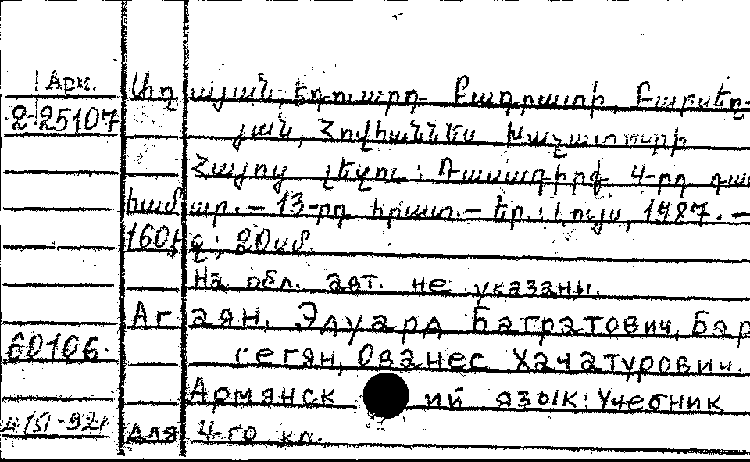 Арм.
Աղայան, Էդուարդ Բագրատի, Բարսեղ-
2-25107
յան, Հովհաննես Խաչատուրի
Հայոց լեզու: Դասագիրք 4-րդ դաս
համար. — 13-րդ հրատ. — Եր.: Լույս, 1987. —
160 էջ; 20 սմ.
На обл. авт. не указаны.
Агаян, Эдуард Багратович, Бар
60106.
сегян, Ованес Хачатурович.
Армянский язык: Учебник
для 4-го кл.